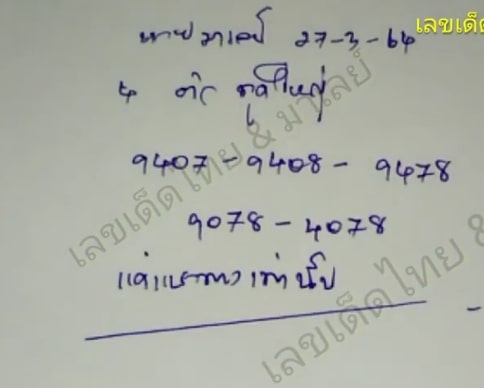 เลขเด็ด
หวยมาเลย์ 27-3-64
4 ตัว ชุดใหญ่
9407-9408-9478
9078-4078
แค่แนวทางเท่านั้น
เลขเด็ดไทย & มาเลย์
เลขเด็ดไทย &